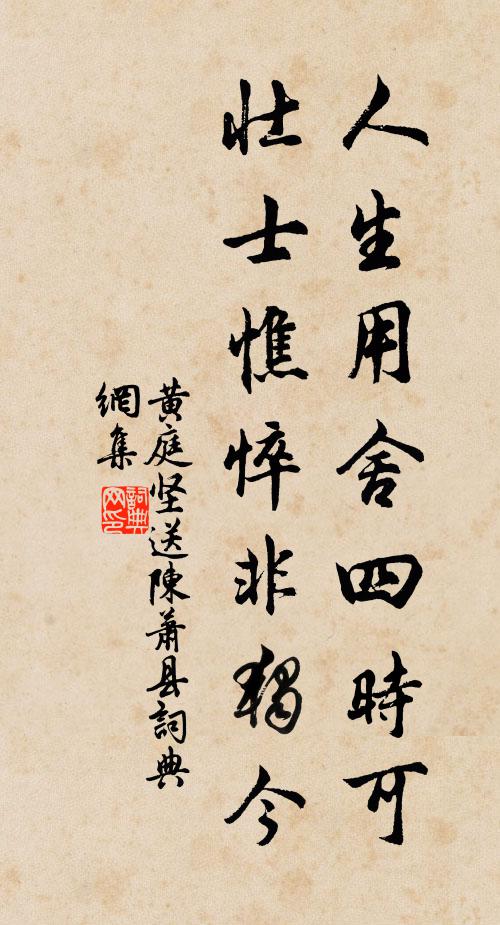 人生用舍四時可
壯士憔悴非獨今
黄庭坚送陳蕭县詞典
網集
詞典
网印